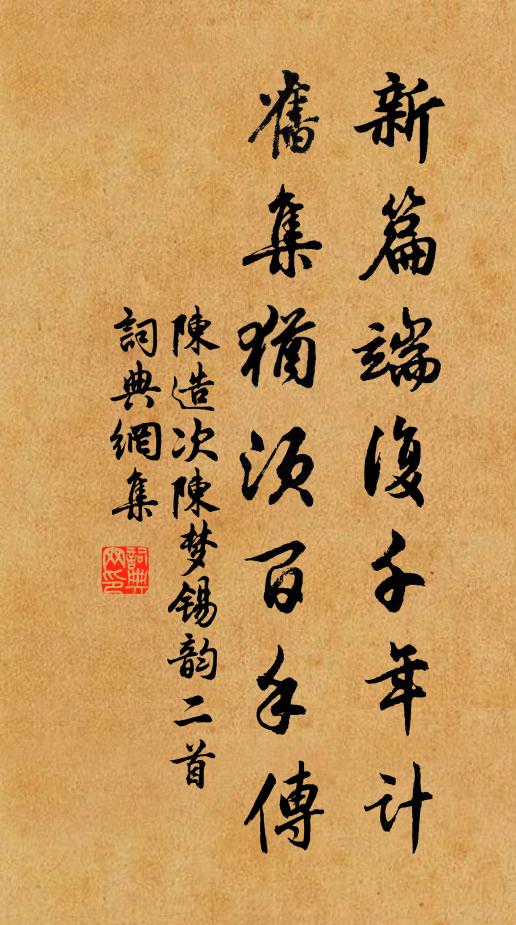 新篇端復千年计
舊集猶須百手傳
陳造次陳梦錫韵二首
詞典網集
詞典网印